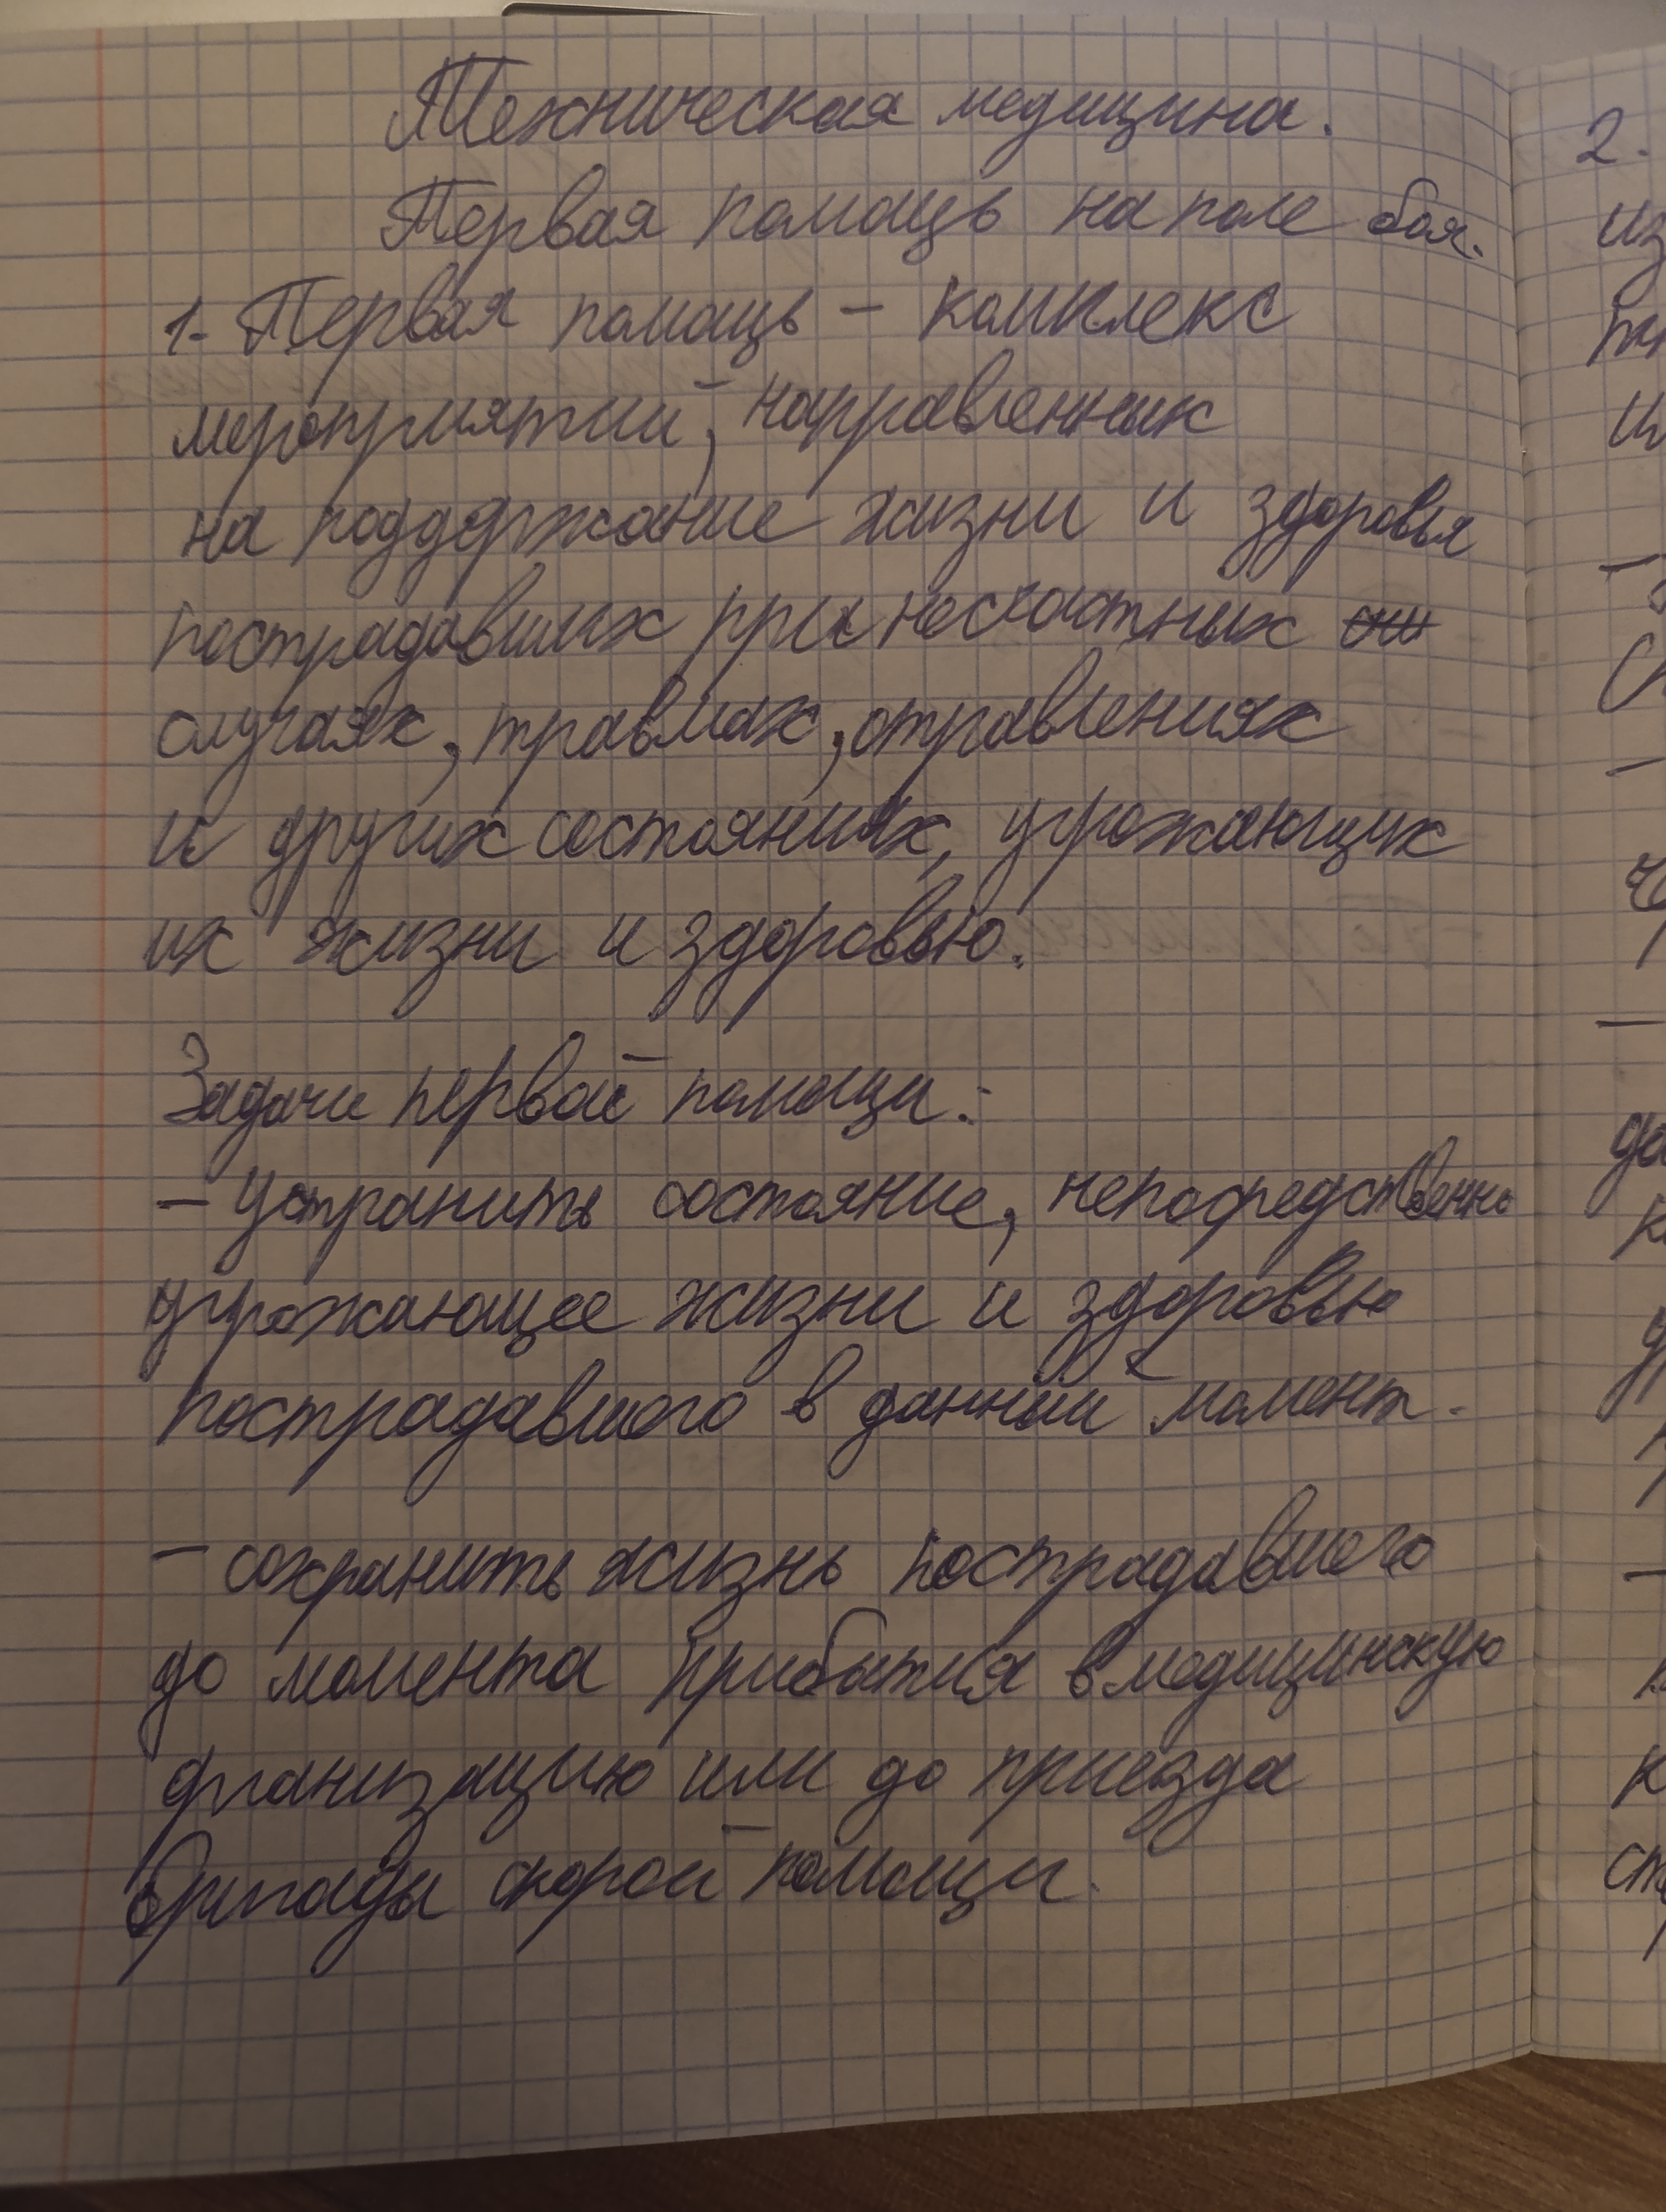 Техническая медицина.
Первая помощь на поле боя.
1. Первая помощь – комплекс
мероприятий, направленных
на поддержание жизни и здоровья
пострадавших при несчастных
случаях, травмах, отравлениях
и других состояниях, угрожающих
их жизни и здоровью.
Задачи первой помощи:
– устранить состояние, непосредственно
угрожающее жизни и здоровью
пострадавшего в данный момент.
– сохранить жизнь пострадавшего
до момента прибытия в медицинскую
организацию или до приезда
бригады скорой помощи.
2.